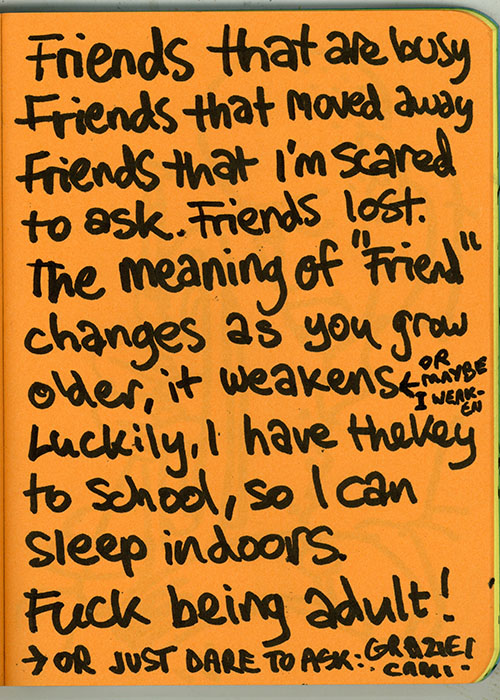 Friends that are busy
Friends that moved away
Friends that I'm scared
to ask. Friends lost.
The meaning of "Friend"
changes as you grow
older, it weakens ← OR MAYBE I WEAK-EN
Luckily, I have the key
to school, so I can
sleep indoors.
Fuck being adult!
→ OR JUST DARE TO ASK: GRAZIE!
CAMI.